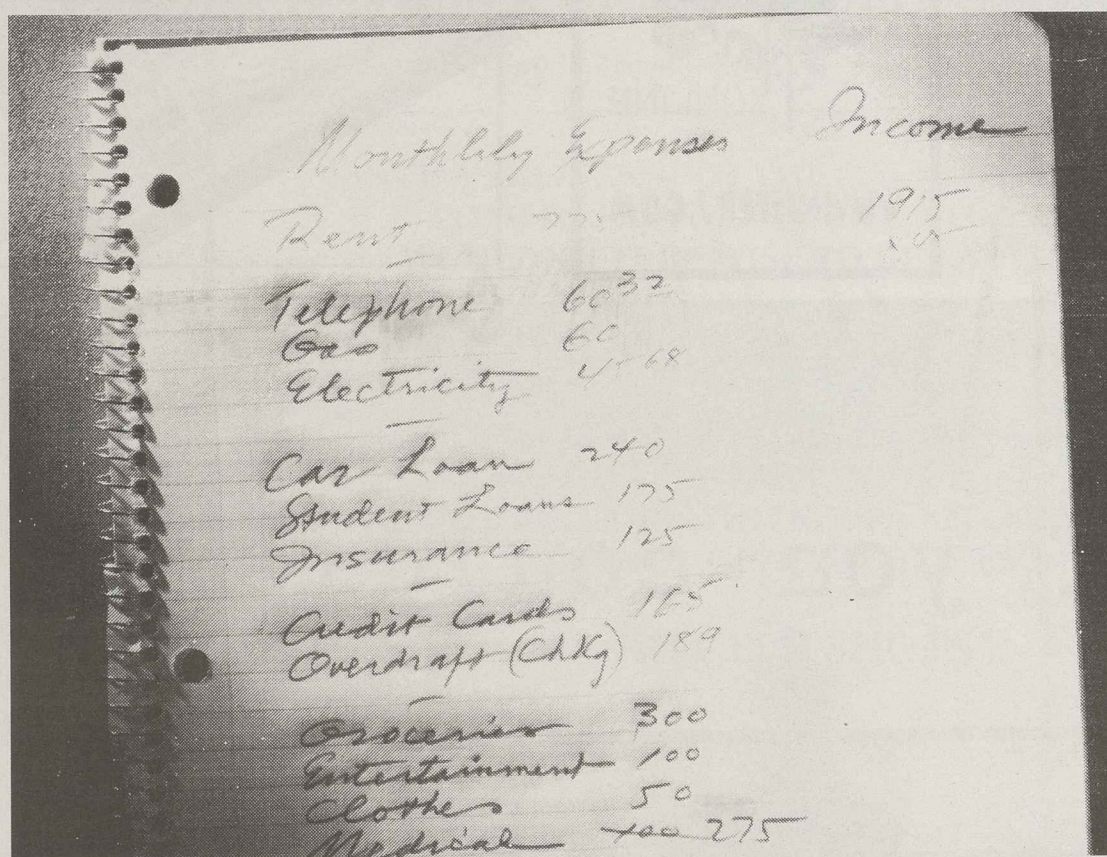 Monthlyly Expenses Income
Rent 1915
Telephone 60 32
Gas 60
Electricity 45 68
Car Loan 240
Student Loans 175
Insurance 125
Credit Cards 165
Overdraft (ChKg) 189
Groceries 300
Entertainment 100
Clothes 50
Medical 275